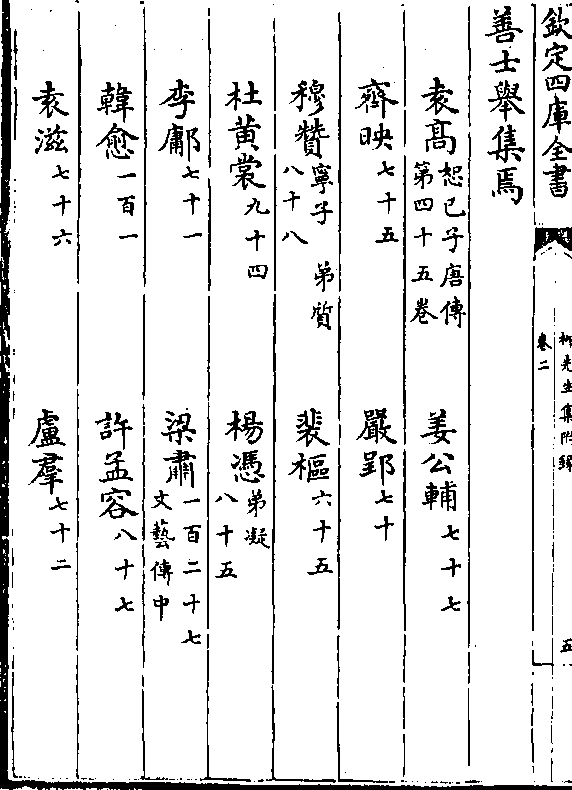 欽定四庫全書
柳先生集附録
卷二
五
善士舉集焉
袁高恕己子唐傳第四十五卷
姜公輔七十七
齊映七十五
嚴郢七十
穆贊寧子 弟質八十八
裴樞六十五
杜黃裳九十四
楊憑弟凝八十五
李鄘七十一
梁肅一百二十七文藝傳中
韓愈一百一
許孟容八十七
袁滋七十六
盧羣七十二